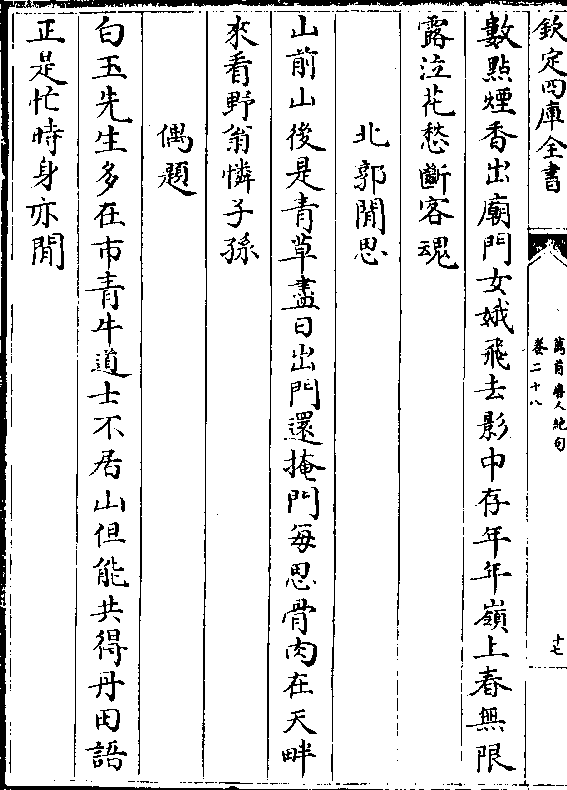 欽定四庫全書
萬首唐人絶句
卷二十八
十七
數點煙香出廟門女娥飛去影中存年年嶺上春無限
露泣花愁斷客魂
北郭閒思
山前山後是青草盡日出門還掩門每思骨肉在天畔
來看野翁憐子孫
偶題
白玉先生多在市青牛道士不居山但能共得丹田語
正是忙時身亦閒